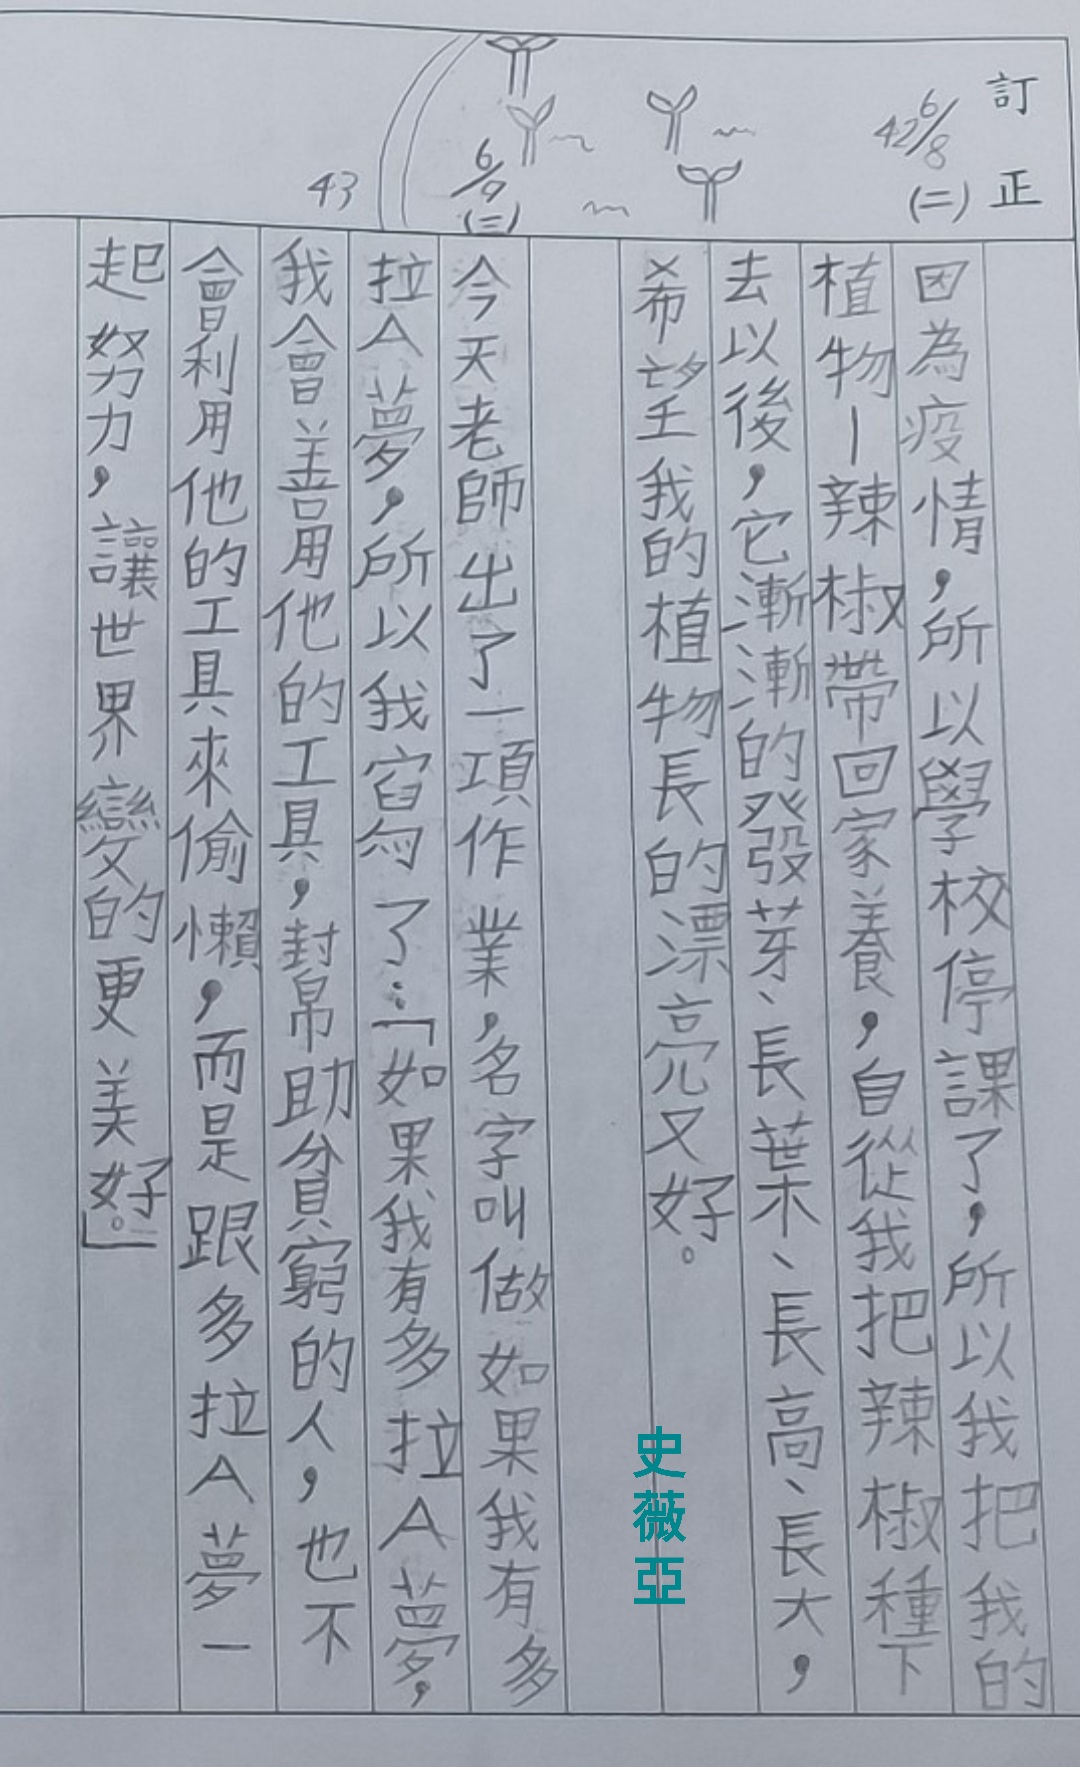 訂正
42 6/8 (二)
因為疫情，所以學校停課了，所以我把我的
植物—辣椒帶回家養，自從我把辣椒種下
去以後，它漸漸的發芽、長葉、長高、長大，
希望我的植物長的漂亮又好。
史薇亞
6/9 (三)
43
今天老師出了一項作業，名字叫做如果我有多
拉A夢，所以我寫了：「如果我有多拉A夢，
我會善用他的工具，幫助貧窮的人，也不
會利用他的工具來偷懶，而是跟多拉A夢一
起努力，讓世界變的更美好。」